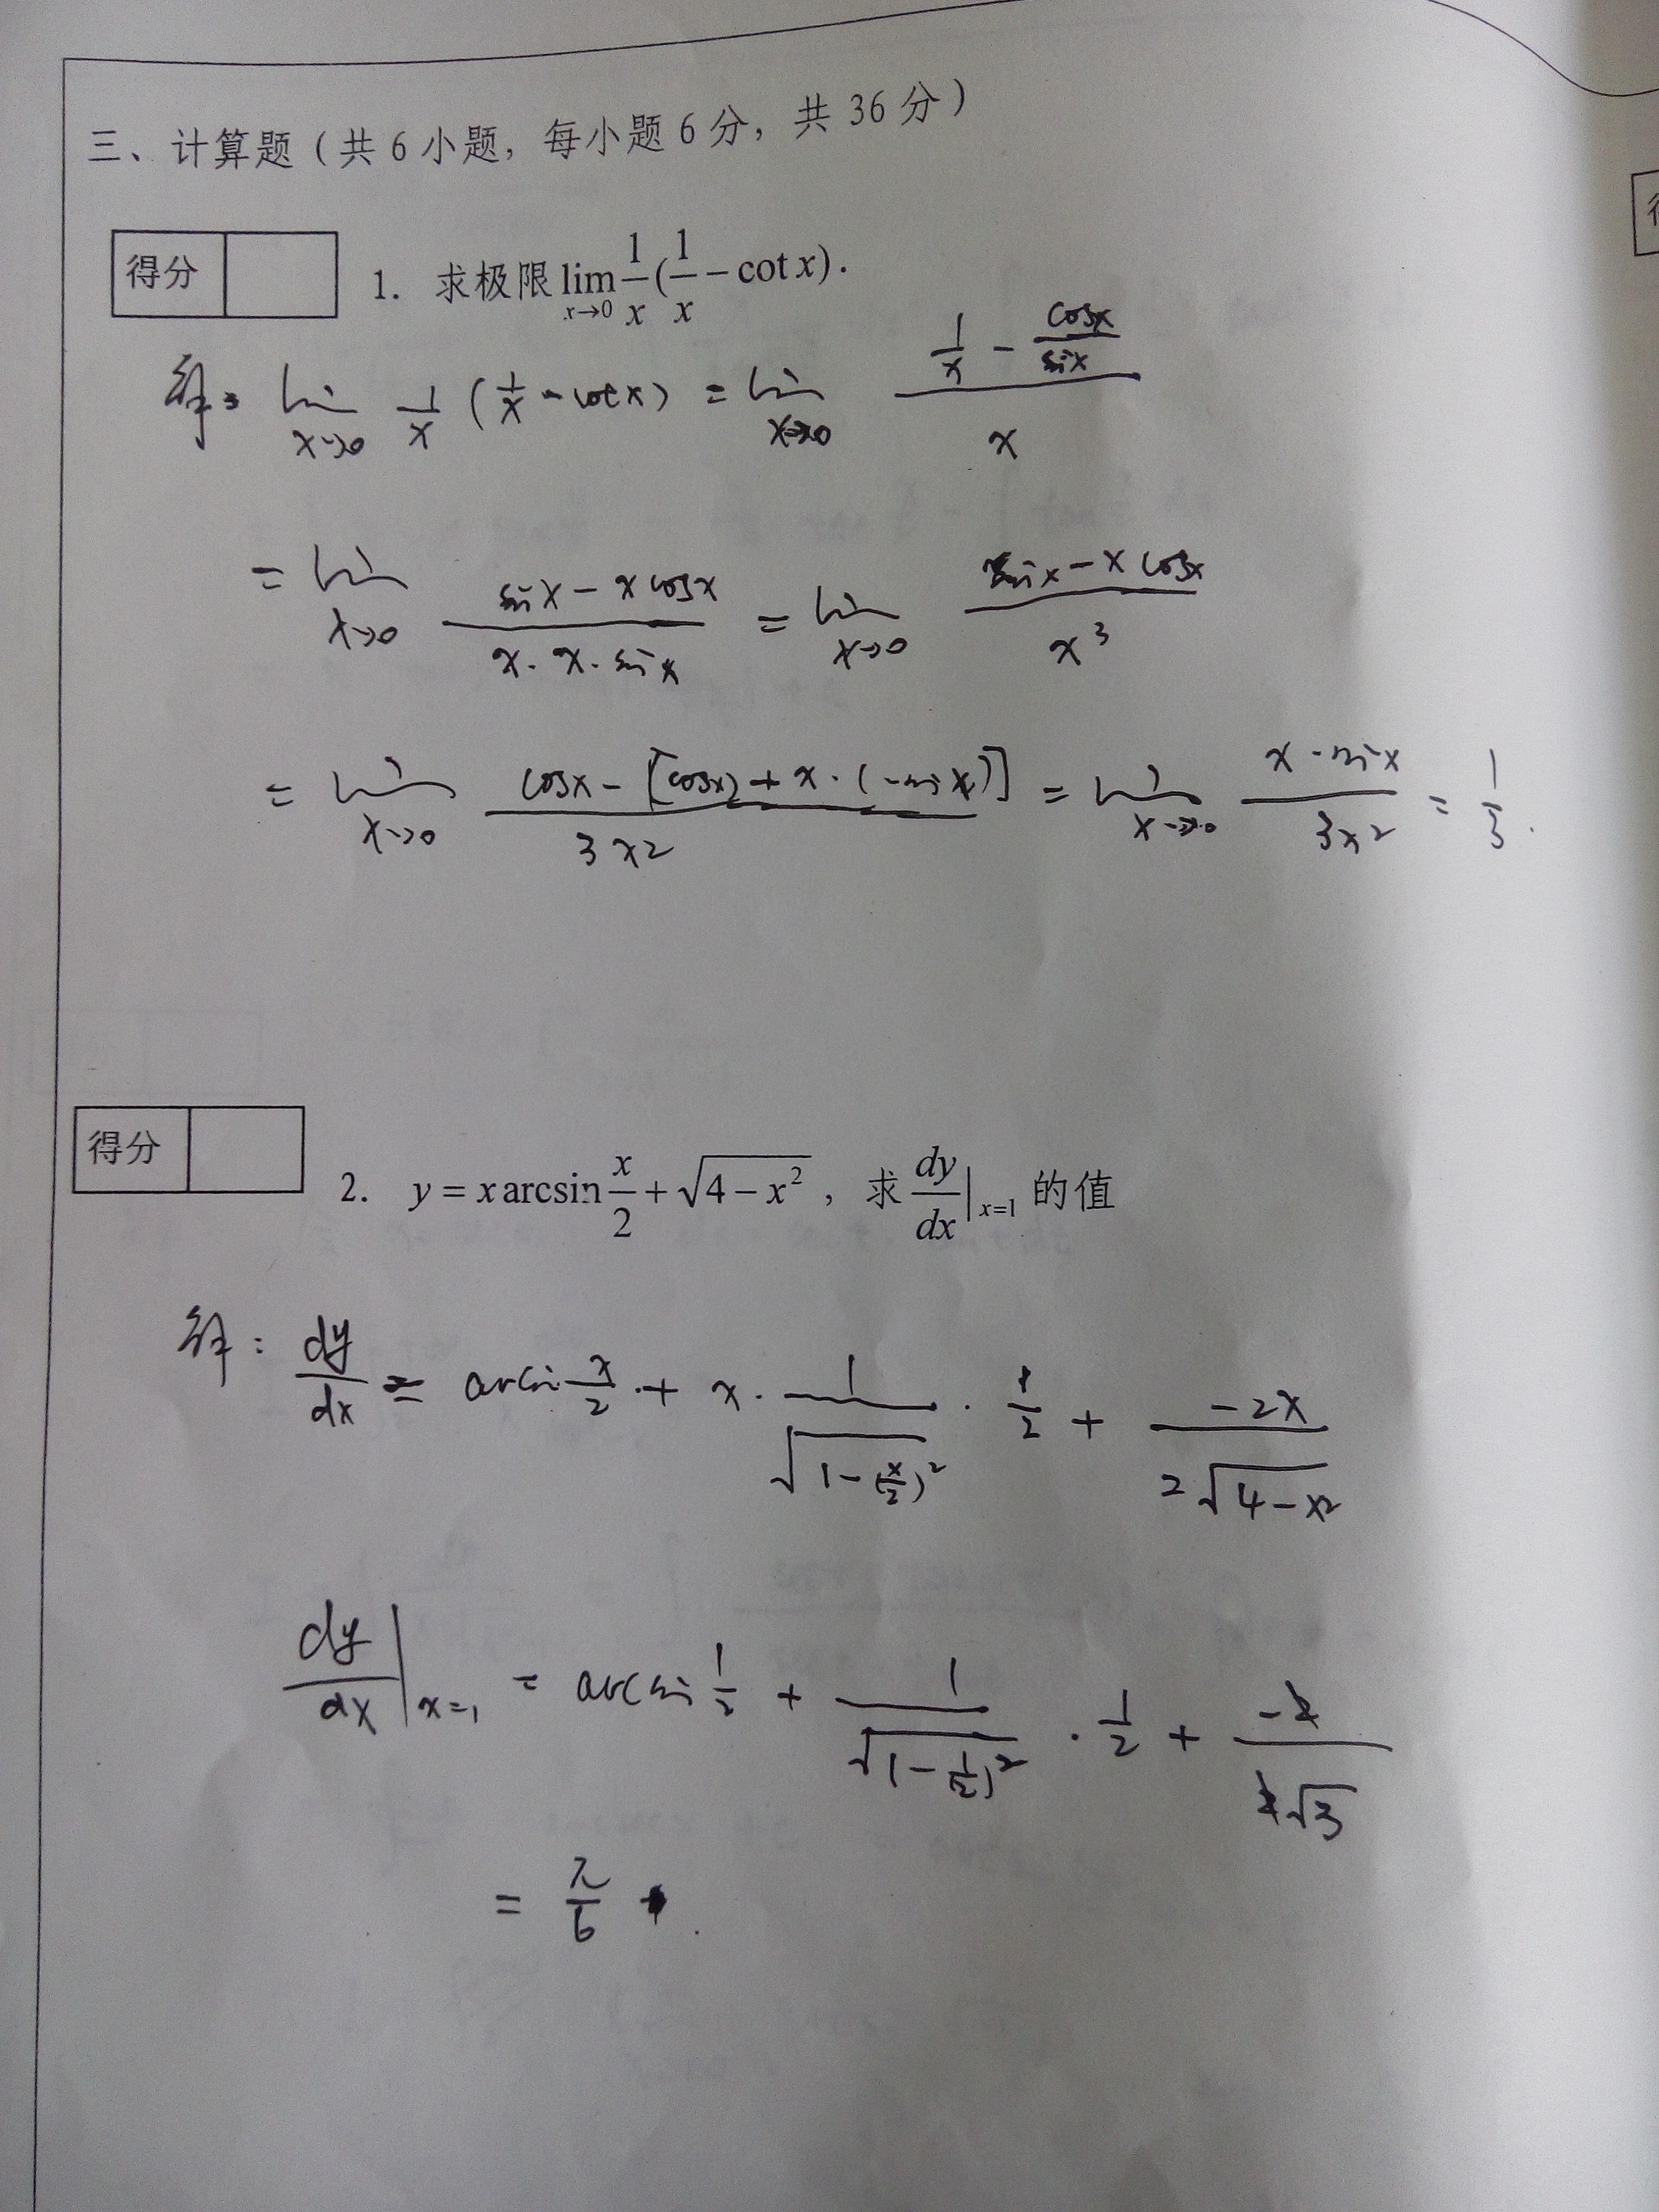 三、计算题（共 6 小题，每小题 6 分，共 36 分）
得分
1. 求极限 lim_{x→0} 1/x (1/x − cot x).
解: lim_{x→0} 1/x (1/x − cot x) = lim_{x→0} (1/x − cosx/sinx)/x
= lim_{x→0} (sinx − x cosx)/(x·x·sinx) = lim_{x→0} (sinx − x cosx)/x³
= lim_{x→0} (cosx − [cosx + x·(−sinx)])/(3x²) = lim_{x→0} (x·sinx)/(3x²) = 1/3.
得分
2. y = x arcsin x/2 + √(4 − x²) ，求 dy/dx|_{x=1} 的值
解: dy/dx = arcsin x/2 + x · 1/√(1−(x/2)²) · 1/2 + (−2x)/(2√(4−x²))
dy/dx|_{x=1} = arcsin 1/2 + 1/√(1−(1/2)²) · 1/2 + (−2)/(2√3)
= π/6 .
得